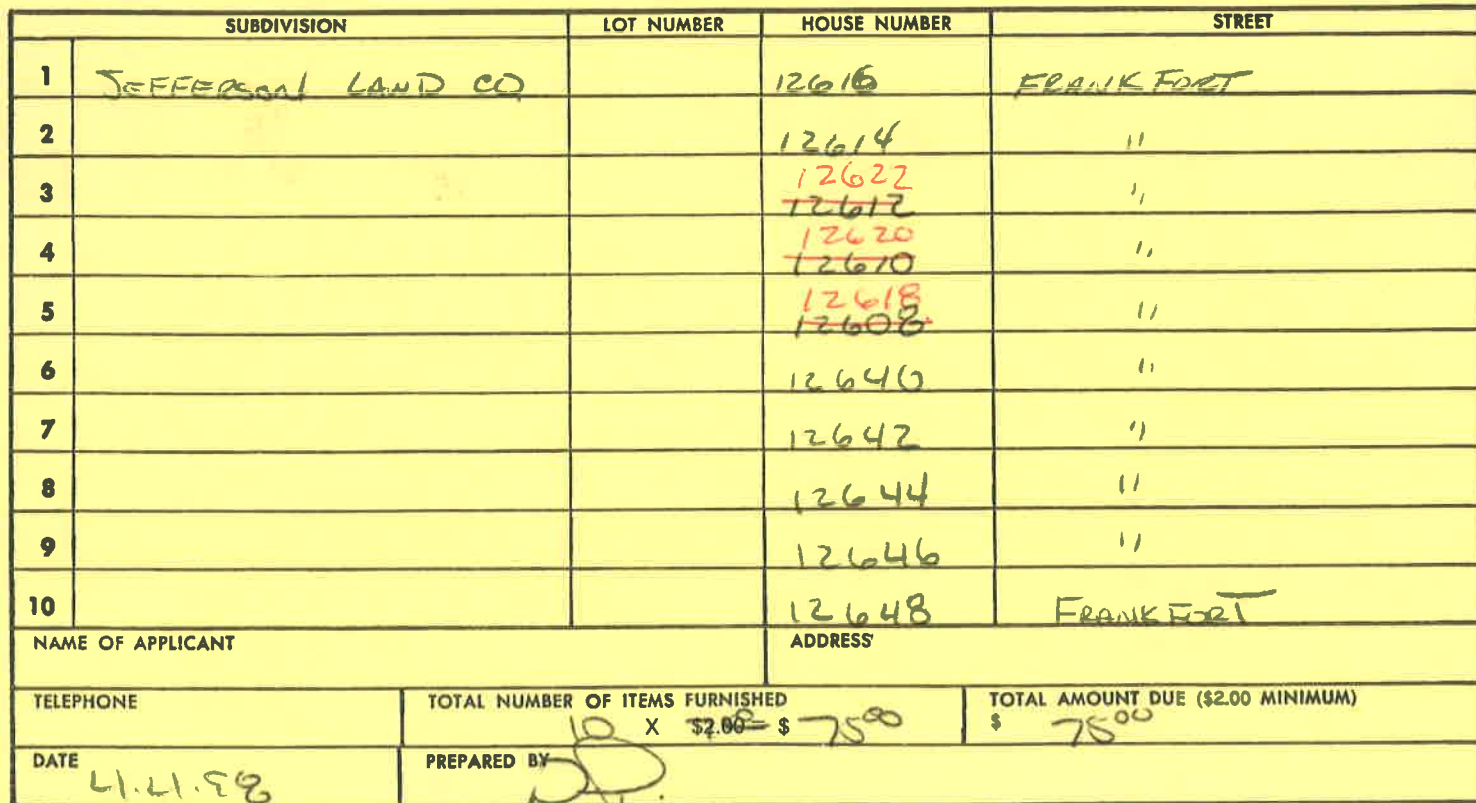 SUBDIVISION LOT NUMBER HOUSE NUMBER STREET
1 JEFFERSON LAND CO 12616 FRANKFORT
2 12614 "
12622
3 12612 "
12620
4 12610 "
12618
5 12608 "
6 12640 "
7 12642 "
8 12644 "
9 12646 "
10 12648 FRANKFORT
NAME OF APPLICANT ADDRESS
TELEPHONE TOTAL NUMBER OF ITEMS FURNISHED TOTAL AMOUNT DUE ($2.00 MINIMUM)
10 X $2.00 = $ 75.00 $ 75.00
DATE PREPARED BY